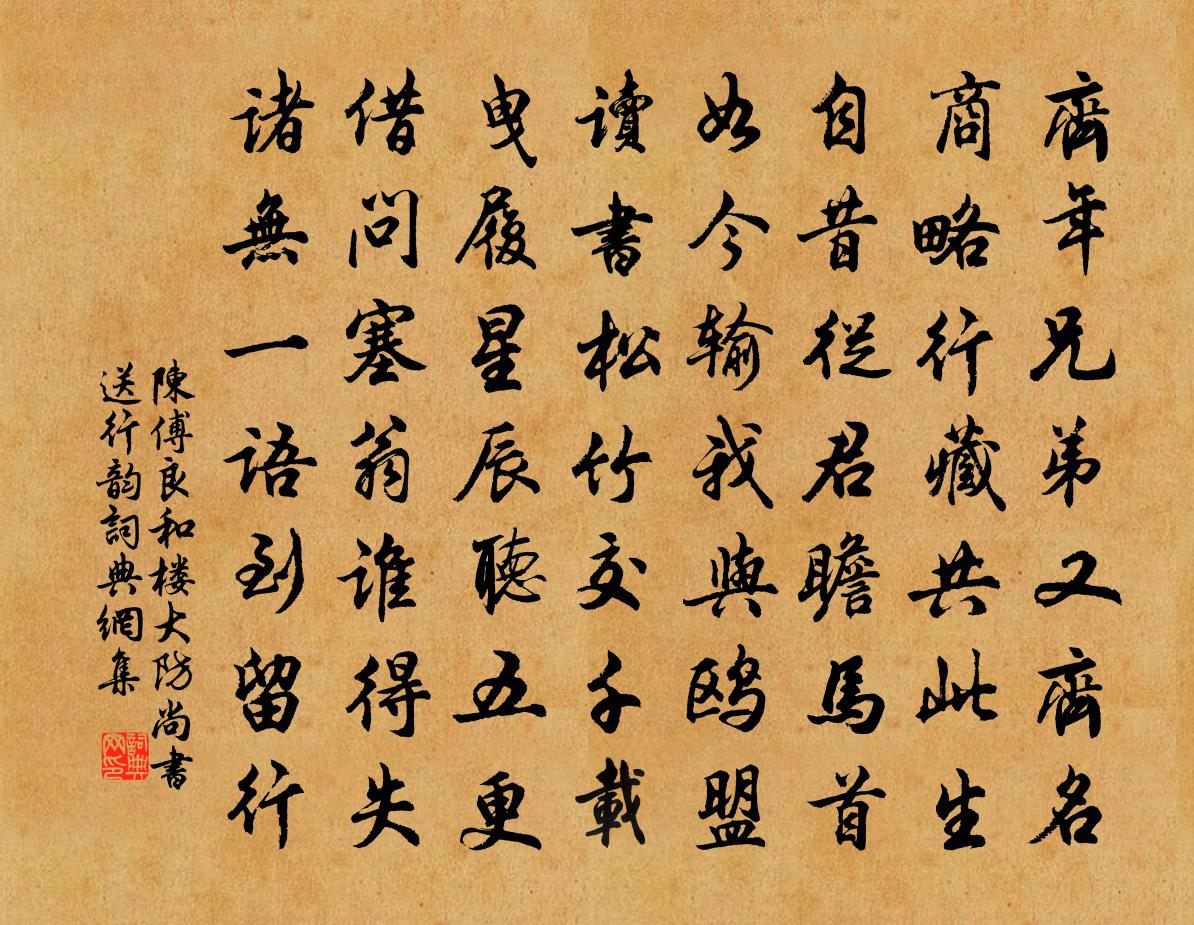 齊年兄弟又齊名
商略行藏共此生
自昔從君瞻馬首
如今输我與鸥盟
讀書松竹交千載
曳履星辰聽五更
借問塞翁誰得失
諸無一語到留行
陳傅良和楼大防尚書
送行韵詞典網集
詞典网印